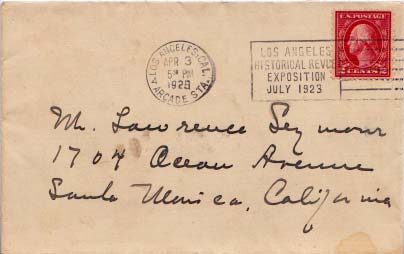 LOS ANGELES, CAL.
APR 3
5 PM
1923
ARCADE STA.
LOS ANGELES
HISTORICAL REVUE
EXPOSITION
JULY 1923
U.S. POSTAGE
2 CENTS 2
Mr. Lawrence Seymour
1704 Ocean Avenue
Santa Monica, California